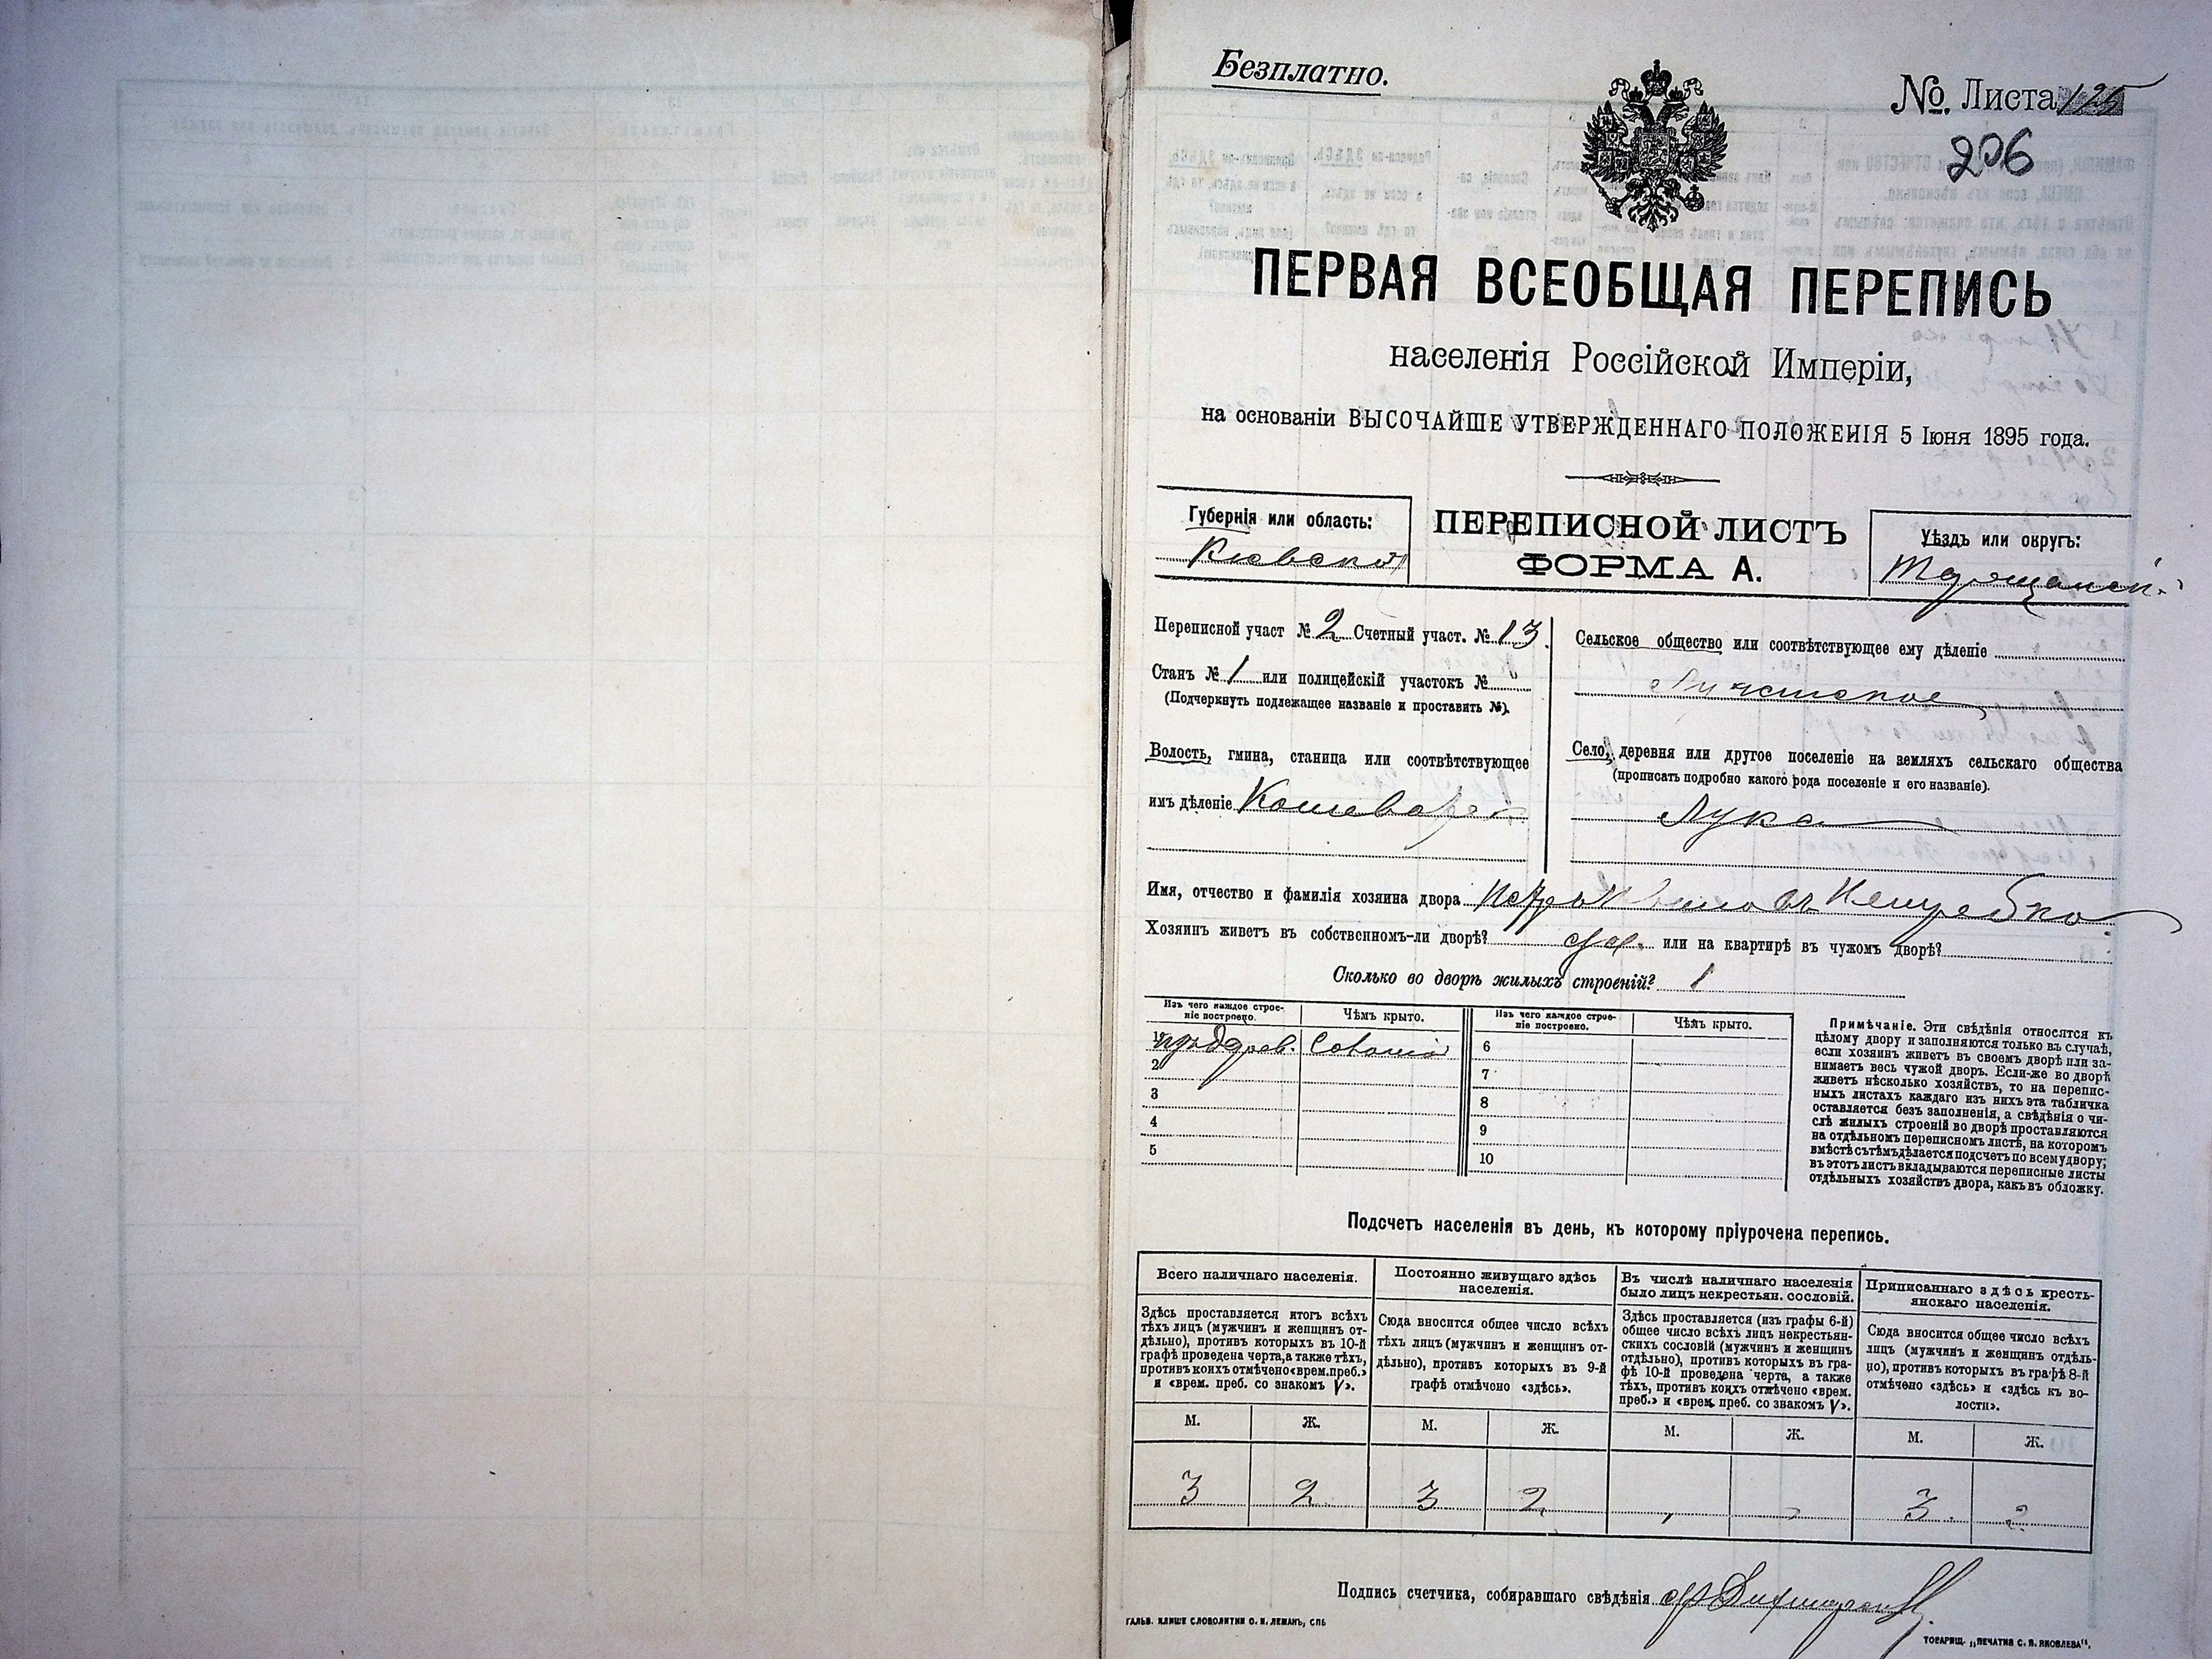 Безплатно.
№. Листа 125
206
ПЕРВАЯ ВСЕОБЩАЯ ПЕРЕПИСЬ
населенія Россійской Имперіи,
на основаніи ВЫСОЧАЙШЕ УТВЕРЖДЕННАГО ПОЛОЖЕНІЯ 5 Іюня 1895 года.
Губернія или область:
Кіевской
ПЕРЕПИСНОЙ ЛИСТЪ
ФОРМА А.
Уѣздъ или округъ:
Таращанск.
Переписной участ № 2 Счетный участ. № 13.
Станъ № 1 или полицейскій участокъ №
(Подчеркнуть подлежащее названіе и проставить №).
Сельское общество или соотвѣтствующее ему дѣленіе
Волость, гмина, станица или соотвѣтствующее
имъ дѣленіе Кошеват
Село, деревня или другое поселеніе на земляхъ сельскаго общества
(прописать подробно какого рода поселеніе и его названіе).
Лука
Имя, отчество и фамилія хозяина двора
Хозяинъ живетъ въ собственномъ-ли дворѣ? да. или на квартирѣ въ чужомъ дворѣ?
Сколько во дворѣ жилыхъ строеній? 1
Изъ чего каждое строе-
ніе построено.
Чѣмъ крыто.
Изъ чего каждое строе-
ніе построено.
Чѣмъ крыто.
1 Соломой
2
3
4
5
6
7
8
9
10
Примѣчаніе. Эти свѣдѣнія относятся къ
цѣлому двору и заполняются только въ случаѣ,
если хозяинъ живетъ въ своемъ дворѣ или за-
нимаетъ весь чужой дворъ. Если-же во дворѣ
живетъ нѣсколько хозяйствъ, то на перепис-
ныхъ листахъ каждаго изъ нихъ эта табличка
оставляется безъ заполненія, а свѣдѣнія о чи-
слѣ жилыхъ строеній во дворѣ проставляются
на отдѣльномъ переписномъ листѣ, на которомъ
вмѣстѣ съ тѣмъ дѣлается подсчетъ по всему двору;
въ этотъ листъ вкладываются переписные листы
отдѣльныхъ хозяйствъ двора, какъ въ обложку.
Подсчетъ населенія въ день, къ которому пріурочена перепись.
Всего наличнаго населенія.
Здѣсь проставляется итогъ всѣхъ
тѣхъ лицъ (мужчинъ и женщинъ от-
дѣльно), противъ которыхъ въ 10-й
графѣ проведена черта, а также тѣхъ,
противъ коихъ отмѣчено «врем. преб.»
и «врем. преб. со знакомъ V».
Постоянно живущаго здѣсь
населенія.
Сюда вносится общее число всѣхъ
тѣхъ лицъ (мужчинъ и женщинъ от-
дѣльно), противъ которыхъ въ 9-й
графѣ отмѣчено «здѣсь».
Въ числѣ наличнаго населенія
было лицъ некрестьян. сословій.
Здѣсь проставляется (изъ графы 6-й)
общее число всѣхъ лицъ некрестьян-
скихъ сословій (мужчинъ и женщинъ
отдѣльно), противъ которыхъ въ гра-
фѣ 10-й проведена черта, а также
тѣхъ, противъ коихъ отмѣчено «врем.
преб.» и «врем. преб. со знакомъ V».
Приписаннаго здѣсь кресть-
янскаго населенія.
Сюда вносится общее число всѣхъ
лицъ (мужчинъ и женщинъ отдѣль-
но), противъ которыхъ въ графѣ 8-й
отмѣчено «здѣсь» и «здѣсь къ во-
лости».
М. Ж. М. Ж. М. Ж. М. Ж.
3 2 3 2 3 2
Подпись счетчика, собиравшаго свѣдѣнія
ГАЛЬВ. КЛИШЕ СЛОВОЛИТНИ О. И. ЛЕМАНЪ, СПБ
ТОВАРИЩ. „ПЕЧАТНЯ С. П. ЯКОВЛЕВА".